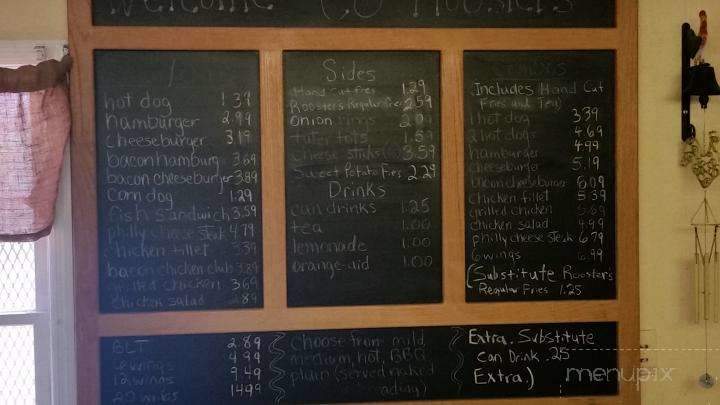 Welcome to Roosters
hot dog 1.39
hamburger 2.99
cheeseburger 3.19
bacon hamburg 3.69
bacon cheeseburger 3.89
corn dog 1.29
fish sandwich 3.59
philly cheese steak 4.79
chicken fillet 3.39
bacon chicken club 3.89
grilled chicken 3.69
chicken salad 2.89
BLT 2.89
6 wings 4.99
12 wings 9.49
20 wings 14.99
Sides
Hand Cut Fries 1.29
Roosters Regular Fries 2.59
onion rings
tater tots 1.59
cheese sticks 3.59
Sweet Potato Fries 2.29
Drinks
can drinks 1.25
tea 1.00
lemonade 1.00
orange-aid 1.00
choose from mild,
medium, hot, BBQ,
plain (served naked
Includes Hand Cut
Fries and Tea)
1 hot dog 3.39
2 hot dogs 4.69
hamburger 4.99
cheeseburger 5.19
bacon cheeseburger 6.09
chicken fillet 5.39
grilled chicken 5.69
chicken salad 4.99
philly cheese steak 6.79
6 wings 6.99
(Substitute Roosters
Regular Fries 1.25
Extra. Substitute
Can Drink .25
Extra.)
menupix